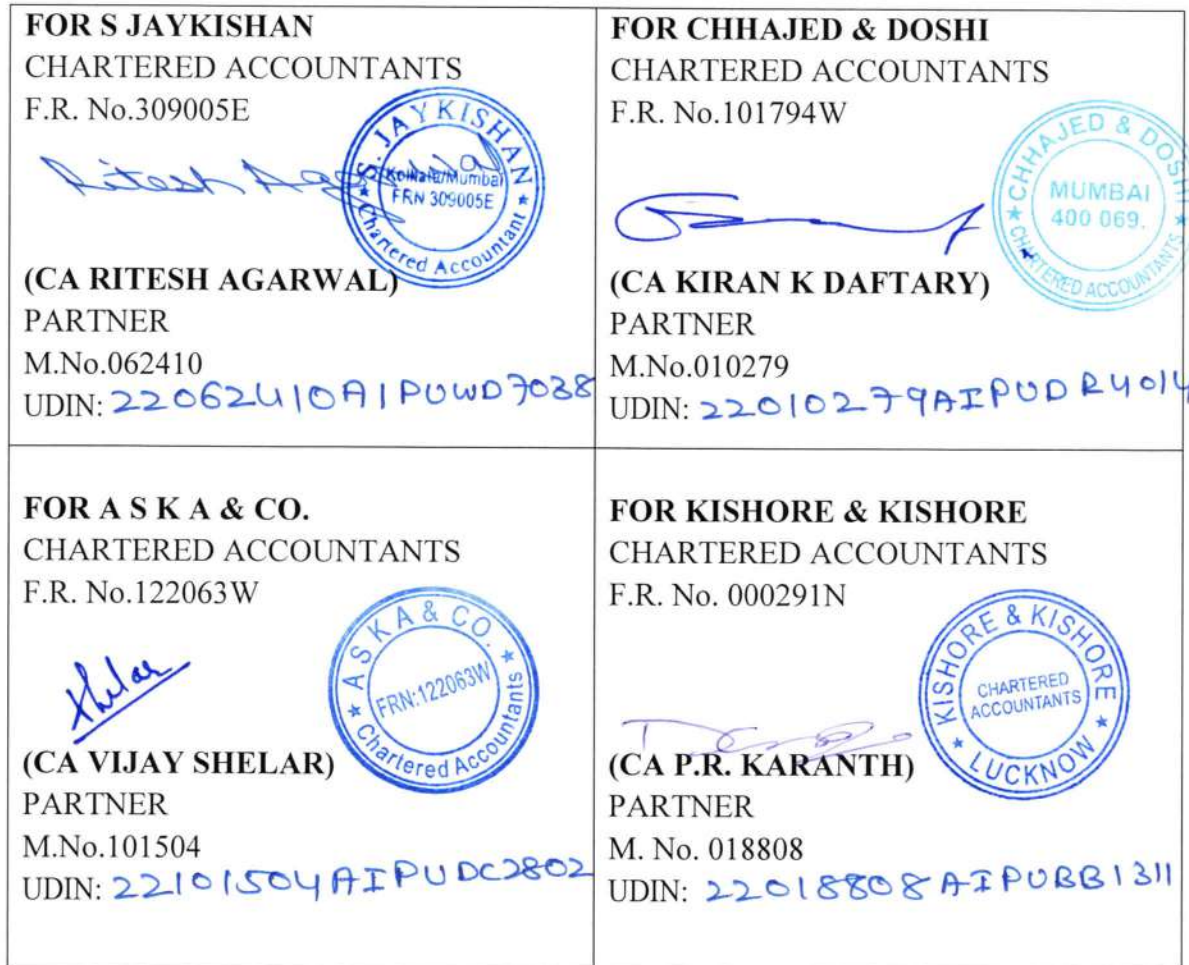 FOR S JAYKISHAN
CHARTERED ACCOUNTANTS
F.R. No.309005E
Ritesh Agarwal
S. JAYKISHAN
Kolkata/Mumbai
FRN 309005E
★ Chartered Accountant ★
(CA RITESH AGARWAL)
PARTNER
M.No.062410
UDIN: 22062410AIPUWD7038
FOR CHHAJED & DOSHI
CHARTERED ACCOUNTANTS
F.R. No.101794W
CHHAJED & DOSHI
MUMBAI
400 069.
★ CHARTERED ACCOUNTANTS ★
(CA KIRAN K DAFTARY)
PARTNER
M.No.010279
UDIN: 22010279AIPUDR4014
FOR A S K A & CO.
CHARTERED ACCOUNTANTS
F.R. No.122063W
A S K A & CO.
FRN:122063W
★ Chartered Accountants ★
Shelar
(CA VIJAY SHELAR)
PARTNER
M.No.101504
UDIN: 22101504AIPUDC2802
FOR KISHORE & KISHORE
CHARTERED ACCOUNTANTS
F.R. No. 000291N
KISHORE & KISHORE
CHARTERED
ACCOUNTANTS
★ LUCKNOW ★
(CA P.R. KARANTH)
PARTNER
M. No. 018808
UDIN: 22018808AIPUBB1311